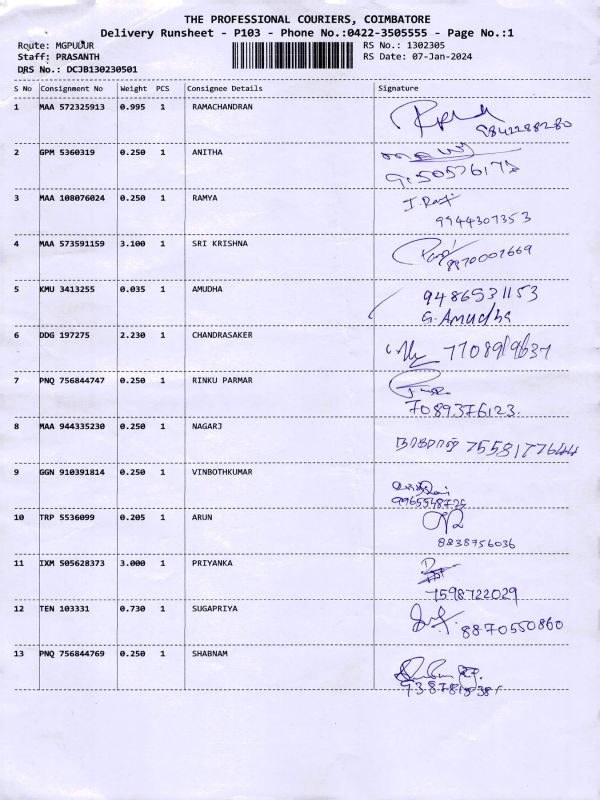 THE PROFESSIONAL COURIERS, COIMBATORE
Delivery Runsheet - P103 - Phone No.:0422-3505555 - Page No.:1
Route: MGPUDUR RS No.: 1302305
Staff: PRASANTH RS Date: 07-Jan-2024
DRS No.: DCJB130230501
S No Consignment No Weight PCS Consignee Details Signature
1 MAA 572325913 0.995 1 RAMACHANDRAN
9842288280
2 GPM 5360319 0.250 1 ANITHA
3 MAA 108076024 0.250 1 RAMYA
9944307353
4 MAA 573591159 3.100 1 SRI KRISHNA
8970007669
5 KMU 3413255 0.035 1 AMUDHA 9486531153
G. Amudha
6 DDG 197275 2.230 1 CHANDRASAKER
7708919637
7 PNQ 756844747 0.250 1 RINKU PARMAR
7089376123.
8 MAA 944335230 0.250 1 NAGARJ
நாகராஜ் 7558177644
9 GGN 910391814 0.250 1 VINBOTHKUMAR
10 TRP 5536099 0.205 1 ARUN
8838756036
11 IXM 505628373 3.000 1 PRIYANKA
7598722029
12 TEN 103331 0.730 1 SUGAPRIYA
8870550860
13 PNQ 756844769 0.250 1 SHABNAM